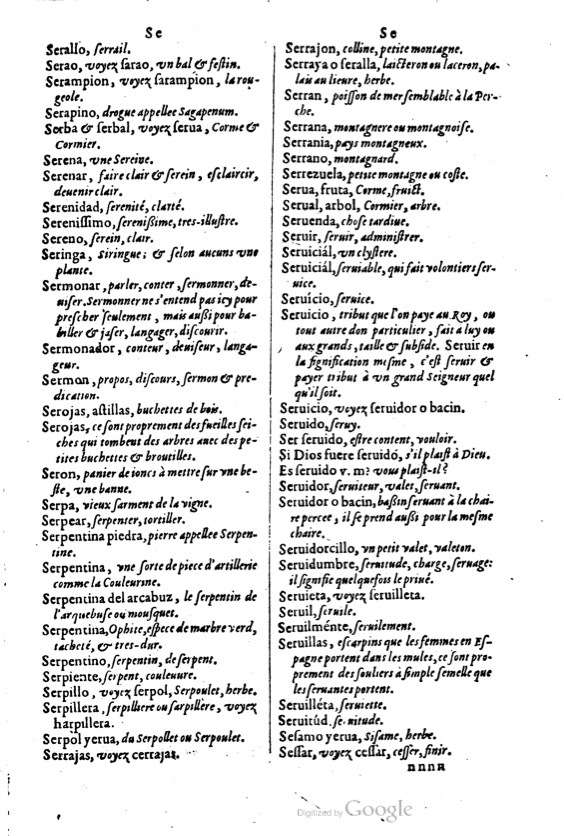 Se
Serallo, ſerrail.
Serao, voyez ſarao, vn bal & feſtin.
Serampion, voyez ſarampion, la rou-
geole.
Serapino, drogue appellee Sagapenum.
Serba & ſerbal, voyez ſerua, Corme &
Cormier.
Serena, vne Sereine.
Serenar, faire clair & ſerein, eſclaircir,
deuenir clair.
Serenidad, ſerenité, clarté.
Sereniſſimo, ſereniſſime, tres-illuſtre.
Sereno, ſerein, clair.
Seringa, Siringue; & ſelon aucuns vne
plante.
Sermonar, parler, conter, ſermonner, de-
uiſer. Sermonner ne s'entend pas icy pour
preſcher ſeulement, mais auſſi pour ba-
biller & jaſer, langager, diſcourir.
Sermonador, conteur, deuiſeur, langa-
geur.
Sermon, propos, diſcours, ſermon & pre-
dication.
Serojas, aſtillas, buchettes de bois.
Serojas, ce ſont proprement des fueilles ſei-
ches qui tombent des arbres auec des pe-
tites buchettes & broutilles.
Seron, panier de ioncs à mettre ſur vne be-
ſte, vne banne.
Serpa, vieux ſarment de la vigne.
Serpear, ſerpenter, tortiller.
Serpentina piedra, pierre appellee Serpen-
tine.
Serpentina, vne ſorte de piece d'artillerie
comme la Couleurine.
Serpentina del arcabuz, le ſerpentin de
l'arquebuſe ou mouſquet.
Serpentina, Ophite, eſpece de marbre verd,
tacheté, & tres-dur.
Serpentino, ſerpentin, de ſerpent.
Serpiente, ſerpent, couleuure.
Serpillo, voyez ſerpol, Serpoulet, herbe.
Serpillera, ſerpilliere ou ſarpillere, voyez
harpillera.
Serpol yerua, du Serpollet ou Serpoulet.
Serrajas, voyez cerrajas.
Se
Serrajon, colline, petite montagne.
Serraya o ſeralla, laicteron ou laceron, pa-
lais au lieure, herbe.
Serran, poiſſon de mer ſemblable à la Per-
che.
Serrana, montagnere ou montagnoiſe.
Serrania, pays montagneux.
Serrano, montagnard.
Serrezuela, petite montagne ou coſte.
Serua, fruta, Corme, fruict.
Serual, arbol, Cormier, arbre.
Seruenda, choſe tardiue.
Seruir, ſeruir, adminiſtrer.
Seruiciál, vn clyſtere.
Seruiciál, ſeruiable, qui fait volontiers ſer-
uice.
Seruício, ſeruice.
Seruicio, tribut que l'on paye au Roy, ou
tout autre don particulier, fait a luy ou
aux grands, taille & ſubſide. Seruir en
la ſignification meſme, c'eſt ſeruir &
payer tribut à vn grand Seigneur quel
qu'il ſoit.
Seruicio, voyez ſeruidor o bacin.
Seruido, ſeruy.
Ser ſeruido, eſtre content, vouloir.
Si Dios fuere ſeruido, s'il plaiſt à Dieu.
Es ſeruido v. m? vous plaiſt-il?
Seruidor, ſeruiteur, valet, ſeruant.
Seruidor o bacin, baſſin ſeruant à la chai-
re percee, il ſe prend auſſi pour la meſme
chaire.
Seruidorcillo, vn petit valet, valeton.
Seruidumbre, ſeruitude, charge, ſeruage:
il ſignifie quelquefois le priué.
Seruieta, voyez ſeruilleta.
Seruil, ſeruile.
Seruilménte, ſeruilement.
Seruillas, eſcarpins que les femmes en Eſ-
pagne portent dans les mules, ce ſont pro-
prement des ſouliers à ſimple ſemelle que
les ſeruantes portent.
Seruilléta, ſeruiette.
Seruitúd, ſeruitude.
Seſamo yerua, Siſame, herbe.
Seſſar, voyez ceſſar, ceſſer, finir.
nnnn
Digitized by Google